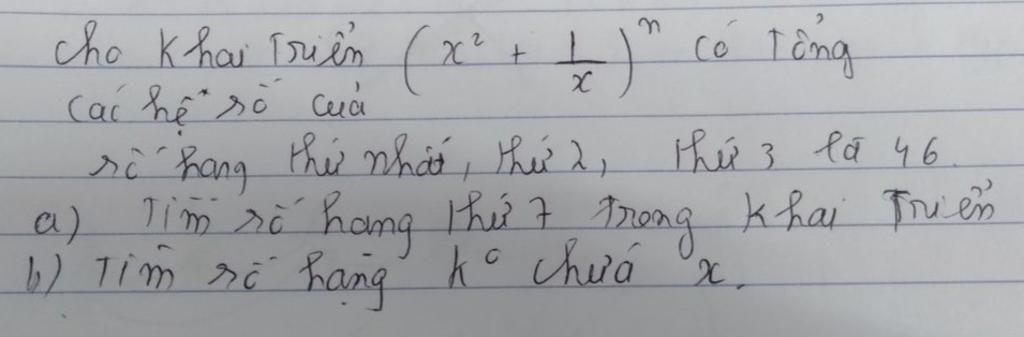 Cho Khai Triển (x² + 1/x)ⁿ có Tổng
các hệ số của
số hạng thứ nhất, thứ 2, thứ 3 là 46.
a) Tìm số hạng thứ 7 trong Khai Triển
b) Tìm số hạng k° chứa x.